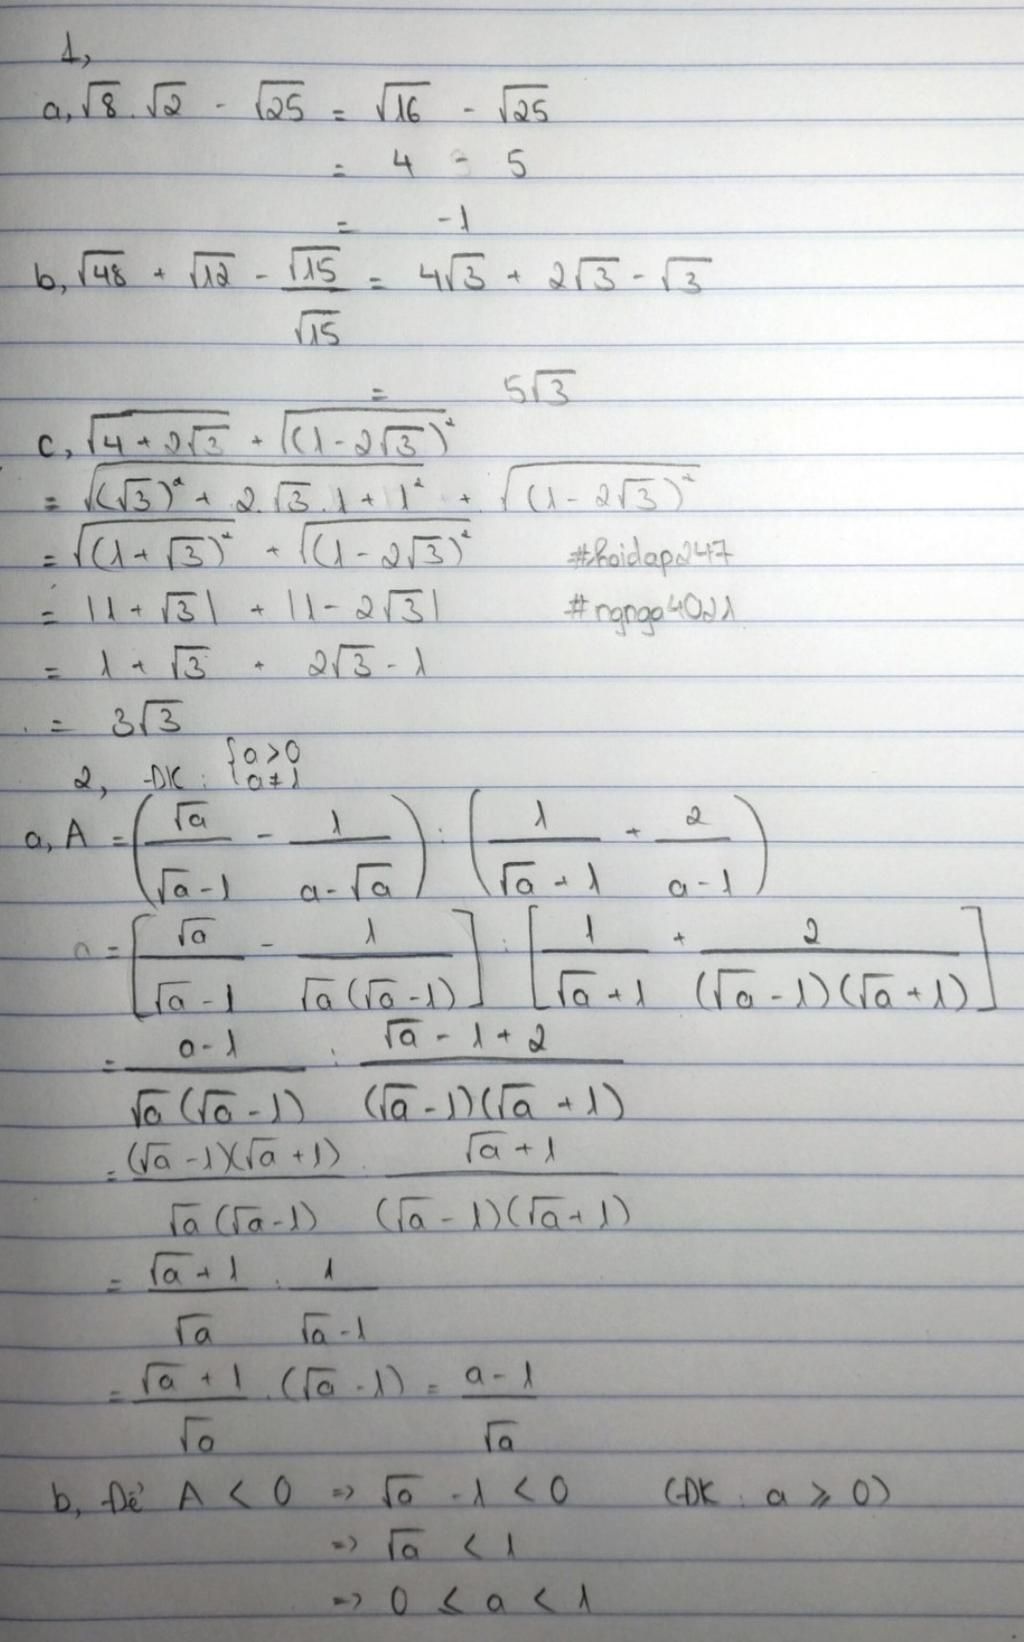 1,
a, √8 . √2 - √25 = √16 - √25
= 4 - 5
= -1
b, √48 + √12 - √15/√15 = 4√3 + 2√3 - √3
= 5√3
c, √(4 + 2√3) + √((1 - 2√3)²)
= √((√3)² + 2.√3.1 + 1²) + √((1 - 2√3)²)
= √((1 + √3)²) + √((1 - 2√3)²) #hoidap247
= |1 + √3| + |1 - 2√3| #ngnga4021
= 1 + √3 + 2√3 - 1
= 3√3
2, ĐK : { a > 0
a ≠ 1
a, A = (√a/(√a - 1) - 1/(a - √a)) : (1/(√a + 1) + 2/(a - 1))
= [√a/(√a - 1) - 1/(√a(√a - 1))] : [1/(√a + 1) + 2/((√a - 1)(√a + 1))]
= (a - 1)/(√a(√a - 1)) : (√a - 1 + 2)/((√a - 1)(√a + 1))
= (√a - 1)(√a + 1)/(√a(√a - 1)) : (√a + 1)/((√a - 1)(√a + 1))
= (√a + 1)/√a : 1/(√a - 1)
= (√a + 1)/√a . (√a - 1) = (a - 1)/√a
b, Để A < 0 => √a - 1 < 0 (ĐK : a ⩾ 0)
=> √a < 1
=> 0 ≤ a < 1